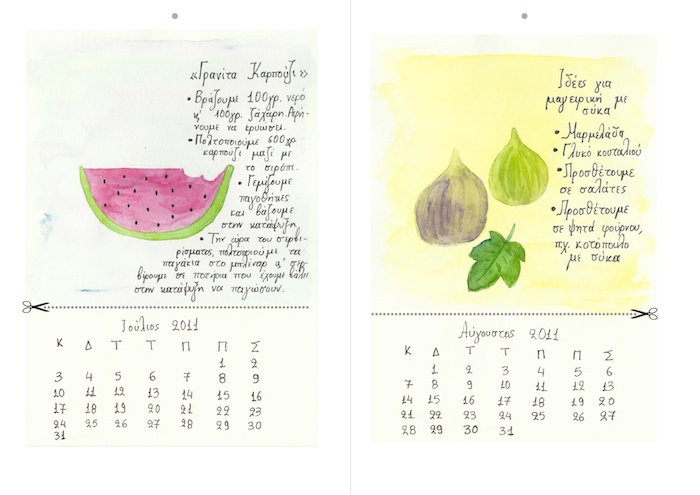 «Γρανίτα Καρπούζι»
• Βράζουμε 100γρ. νερό
κ' 100γρ. ζάχαρη. Αφή-
νουμε να κρυώσει.
• Πολτοποιούμε 600γρ.
καρπούζι μαζί με
το σιρόπι.
• Γεμίζουμε
παγοθήκες
και βάζουμε
στην κατάψυξη.
• Την ώρα του σερβι-
ρίσματος, πολτοποιούμε τα
παγάκια στο μπλέντερ κ' σερ-
βίρουμε σε ποτήρια που έχουμε βάλει
στην κατάψυξη να παγώσουν.
Ιούλιος 2011
Κ Δ Τ Τ Π Π Σ
1 2
3 4 5 6 7 8 9
10 11 12 13 14 15 16
17 18 19 20 21 22 23
24 25 26 27 28 29 30
31
Ιδέες για
μαγειρική με
σύκα
• Μαρμελάδα
• Γλυκό κουταλιού
• Προσθέτουμε
σε σαλάτες
• Προσθέτουμε
σε ψητά φούρνου,
πχ. κοτόπουλο
με σύκα
Αύγουστος 2011
Κ Δ Τ Τ Π Π Σ
1 2 3 4 5 6
7 8 9 10 11 12 13
14 15 16 17 18 19 20
21 22 23 24 25 26 27
28 29 30 31